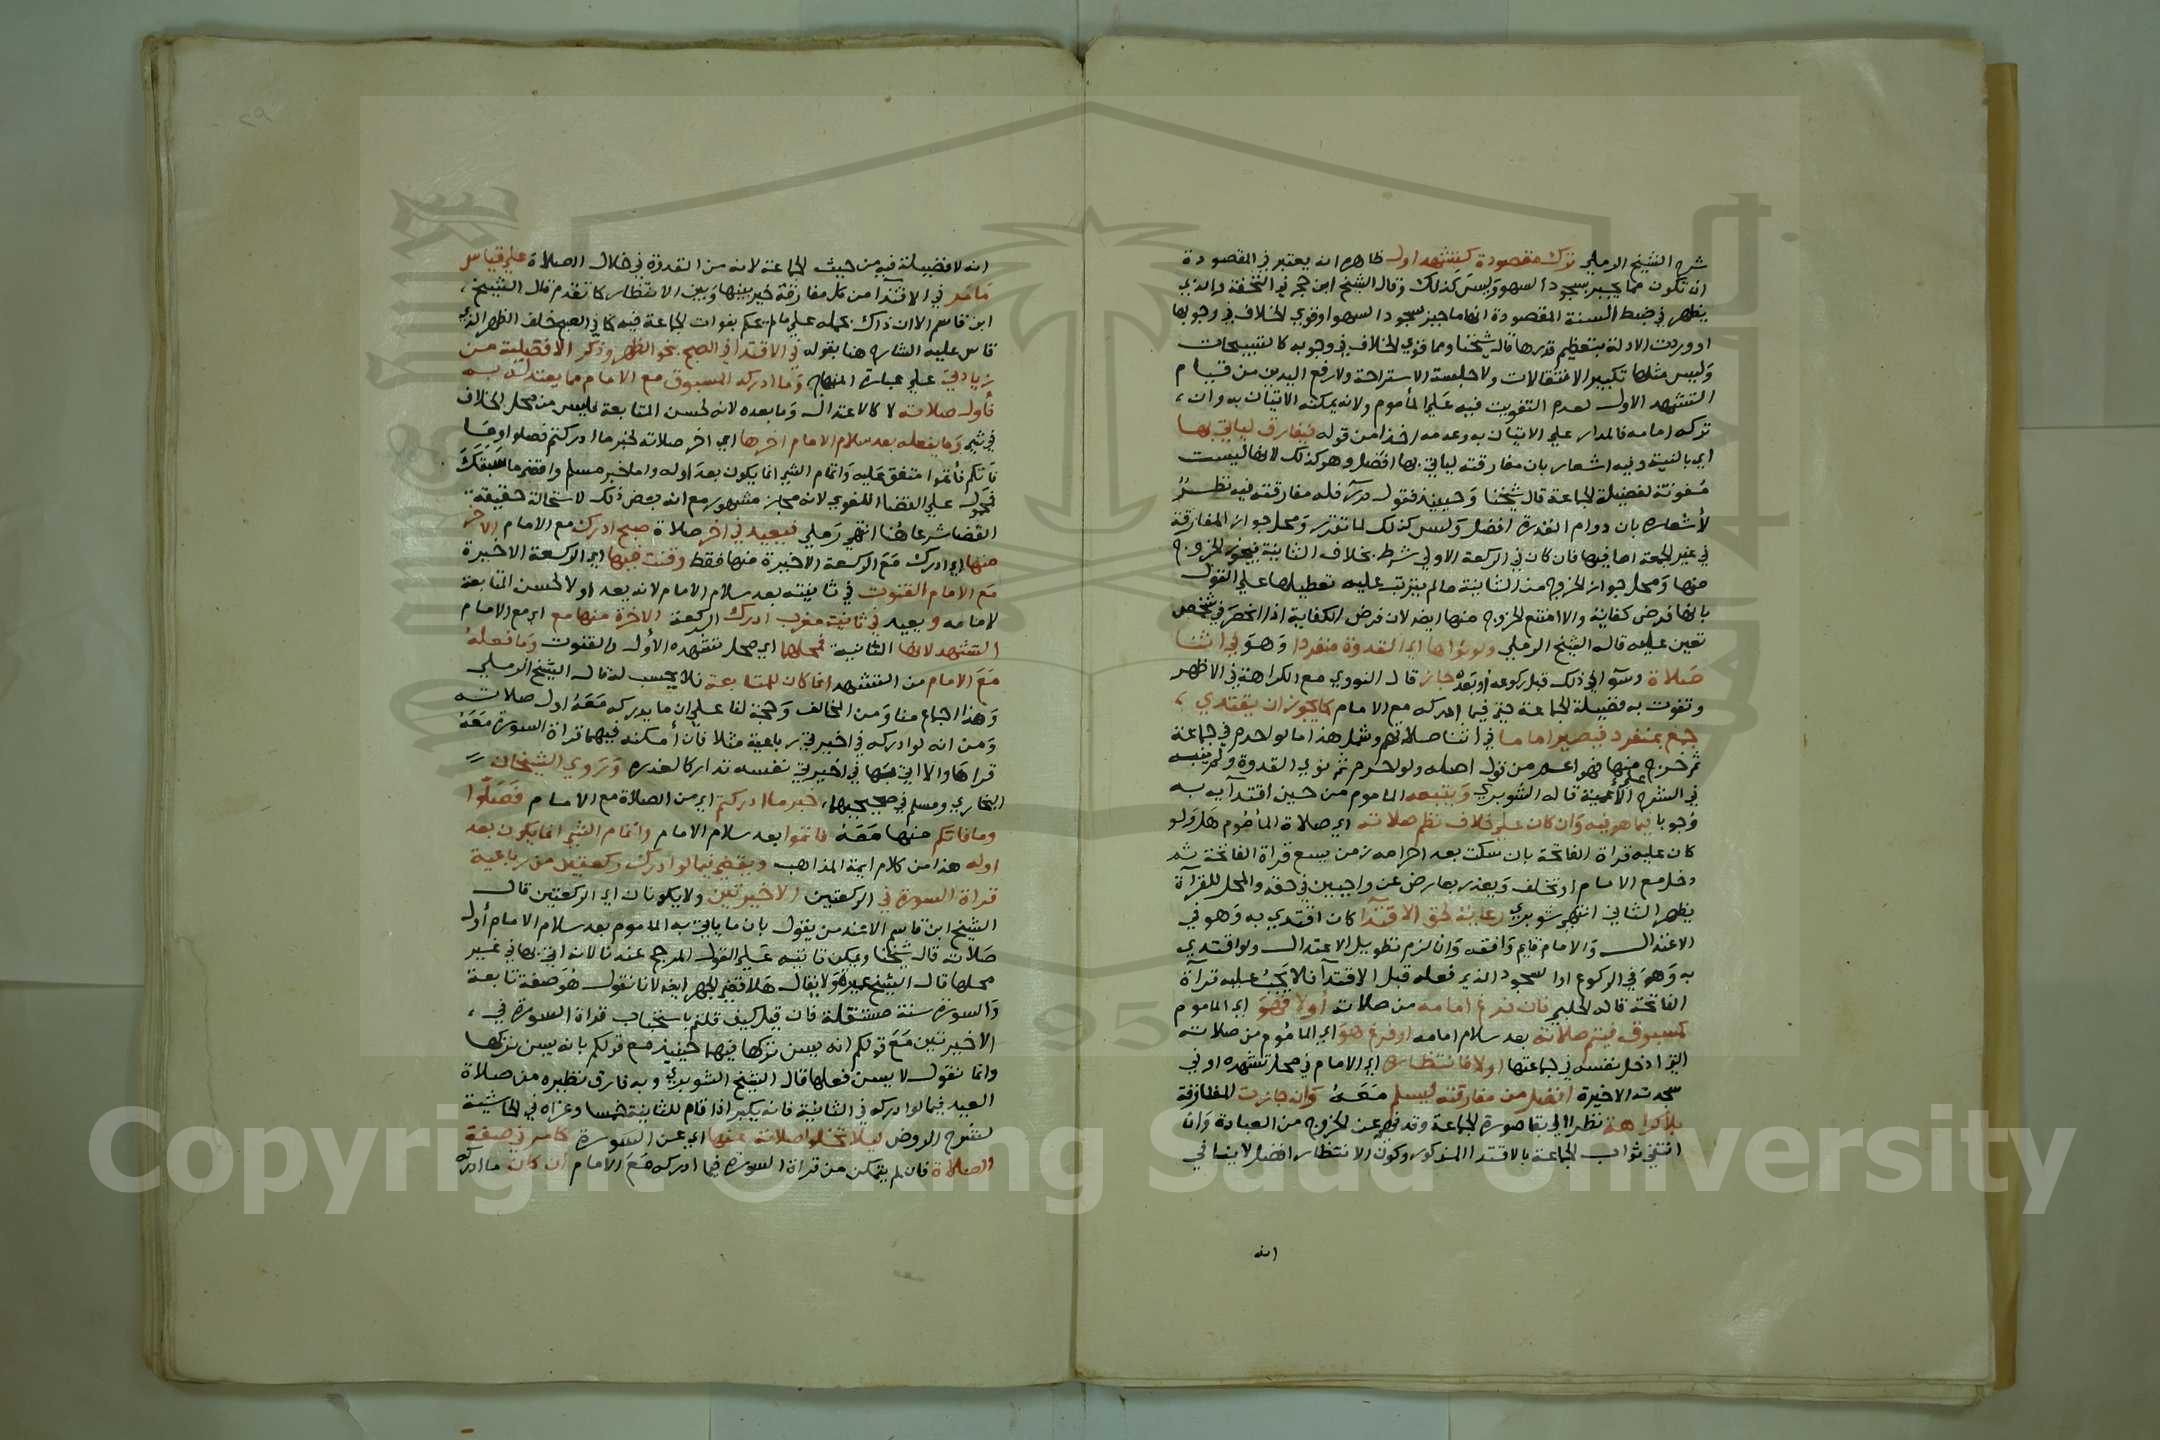 شرح الشيخ الرملي ترك مقصودة كتشهد اول ظاهره انه يعتبر في المقصودة
ان تكون مما يجبر بسجود السهو وليس كذلك وقال الشيخ ابن حجر في التحفة والذي
يظهر في ضبط السنة المقصودة انها ما جبر بسجود السهو او قوي الخلاف في وجوبها
او وردت الادلة بتعظيم قدرها قال شيخنا ومما قوي الخلاف في وجوبه كالتسبيحات
وليس مثلها تكبير الانتقالات ولا جلسة الاستراحة ولا رفع اليدين من قيام
التشهد الاول لعدم التفويت فيه علي المأموم ولانه يمكنه الاتيان به وان
تركه امامه فالمدار علي الاتيان به وعدمه اخذا من قوله فيفارق لياتي بها
اي بالنية وفيه اشعار بان مفارقته لياتي بها افضل وهو كذلك لانها ليست
مفوتة لفضيلة الجماعة قال شيخنا وحينئذ فقول فله مفارقته فيه نظر
لأشعاره بان دوام القدرة افضل وليس كذلك لما تقرر ومحل جواز المفارقة
في غير الجمعة اما فيها فان كان في الركعة الاولي شرط بخلاف الثانية فيجوز الخروج
منها ومحل جواز الخروج من الثانية مالم يترتب عليه تعطيلها علي القول
بانها فرض كفاية والا امتنع الخروج منها ايضا لان فرض الكفاية اذا انحصر في شخص
تعين عليه قاله الشيخ الرملي ولو نواها اي القدوة منفردا وهو في اثنا
صلاة وسوآ في ذلك قبل ركوعه او بعده جاز قال النووي مع الكراهة في الاظهر
وتفوت به فضيلة الجماعة حتي فيما ادركه مع الامام كما يجوز ان يقتدي
جمع بمنفرد فيصير اماما في اثنا صلاتهم وشمل هذا ما لو احرم في جماعة
ثم خرج منها فهو اعم من قول اصله ولو احرم ثم نوي القدوة
في الشرح علي الأغلبية قاله الشوبري ويتبعه الماموم من حين اقتدآيه به
وجوبا فيما هو فيه وان كان علي خلاف نظم صلاته اي صلاة المأموم هل ولو
كان عليه قراة الفاتحة بان سكت بعد احرامه زمن يسع قراة الفاتحة ثم
دخل مع الامام او تخلف ويعذر بعارض عن واجبين في حقه والمحل للقرآة
يظهر الثاني انتهي شوبري رعاية لحق الاقتدآ كان اقتدي به وهو في
الاعتدال والامام قايم وافقه وان لزم تطويل الاعتدال ولو اقتدي
به وهو في الركوع او السجود الذي فعله قبل الاقتدآ فلا يجب عليه قرآة
الفاتحة قاله الحلبي فان فرغ امامه من صلاته أولا فهو اي الماموم
كمسبوق فيتم صلاته بعد سلام امامه او فرغ هو اي المأموم من صلاته
التي ادخل نفسه في جماعتها اولا فانتظاره اي الامام في محل تشهده او في
سجدته الاخيرة افضل من مفارقته ليسلم معه وان جازت المفارقة
بلا كراهة نظرا الي بقا صورة الجماعة وقد نهي عن الخروج من العبادة وان
انتفي ثواب الجماعة بالاقتدا المذكور وكون الانتظار افضل لا ينافي
انه
٢٩
انه لا فضيلة فيه من حيث الجماعة لانه من القدوة في خلال الصلاة علي قياس
مامر في الاقتدا من كل مفارقة خير بينها وبين الانتظار كما تقدم قال الشيخ
ابن قاسم الا ان ذاك بحمله علي مالم يحكم بفوات الجماعة فيه كما في الصبح خلف الظهر الذي
قاس عليه الشارح هنا بقوله في الاقتدا في الصبح بنحو الظهر وذكر الافضلية من
زيادتي علي عبارة المنهاج وما ادركه المسبوق مع الامام مما يعتد له به
فأول صلاته لا كالاعتدال وما بعده لانه لحسن المتابعة فليس من محل الخلاف
في شي وما يفعله بعد سلام الامام اخرها اي اخر صلاته لخبر ما ادركتم فصلوا وما
فاتكم فأتموا متفق عليه واتمام الشي انما يكون بعد اوله واما خبر مسلم واقض ما سبقك
فمحمول علي القضا اللغوي لانه مجاز مشهور مع انه يتعين ذلك لاستحالة حقيقة
القضا شرعا هنا انتهي رملي فيعيد في اخر صلاة صبح ادرك مع الامام الاخر
منها اي ادرك مع الركعة الاخيرة منها فقط وقنت فيها اي الركعة الاخيرة
مع الامام القنوت في ثانيته بعد سلام الامام لانه يعد اولا لحسن المتابعة
لامامه ويعيد في ثانية مغرب ادرك الركعة الاخرة منها مع اي مع الامام
التشهد لانها الثانية فمحلها اي محل تشهده الأول والقنوت وما فعله
مع الامام من التشهد انما كان للمتابعة فلا يحسب له قال الشيخ الرملي
وهذا اجماع منا ومن المخالف وحجة لنا علي ان ما يدركه معه اول صلاته
ومن انه لو ادركه في اخيرتي رباعية مثلا فان أمكنه فيهما قراة السورة معه
قراها والا اتي بها في اخيرتي نفسه تداركا لعذره وروي الشيخان
البخاري ومسلم في صحيحيهما خبر ما ادركتم اي من الصلاة مع الامام فصلوا
وما فاتكم منها معه فاتموا بعد سلام الامام واتمام الشي انما يكون بعد
اوله هذا من كلام ايمة المذاهب ويقضي فيما لو ادرك ركعتين من رباعية
قراة السورة في الركعتين الاخيرتين ولا يكونان اي الركعتين قال
الشيخ ابن قاسم الاعند من يقول بان ما ياتي به الماموم بعد سلام الامام أول
صلاته قال شيخنا ويمكن تاتيه علي القول المرجح عندنا لانه اتي بها في غير
محلها قال الشيخ عميرة ولا يقال هلا قضي الجهر ايضا لانا نقول هو صفة تابعة
والسورة سنة مستقلة فان قيل كيف قلتم باستحباب قراة السورة في
الاخيرتين مع قولكم انه يسن تركها فيهما حينيذ مع قولكم بانه يسن تركها
وانما نقول لا يسن فعلها قال الشيخ الشوبري وبه فارق نظيره من صلاة
العيد فيما لو ادركه في الثانية فانه يكبر اذا قام للثانية خمسا وعزاه في الحاشية
لشرح الروض ليلا تخلوا صلاته عنها اي عن السورة كما مر في صفة
الصلاة فان لم يتمكن من قراة السورة فيما ادركه مع الامام ان كان ما ادركه
Copyright © King Saud University